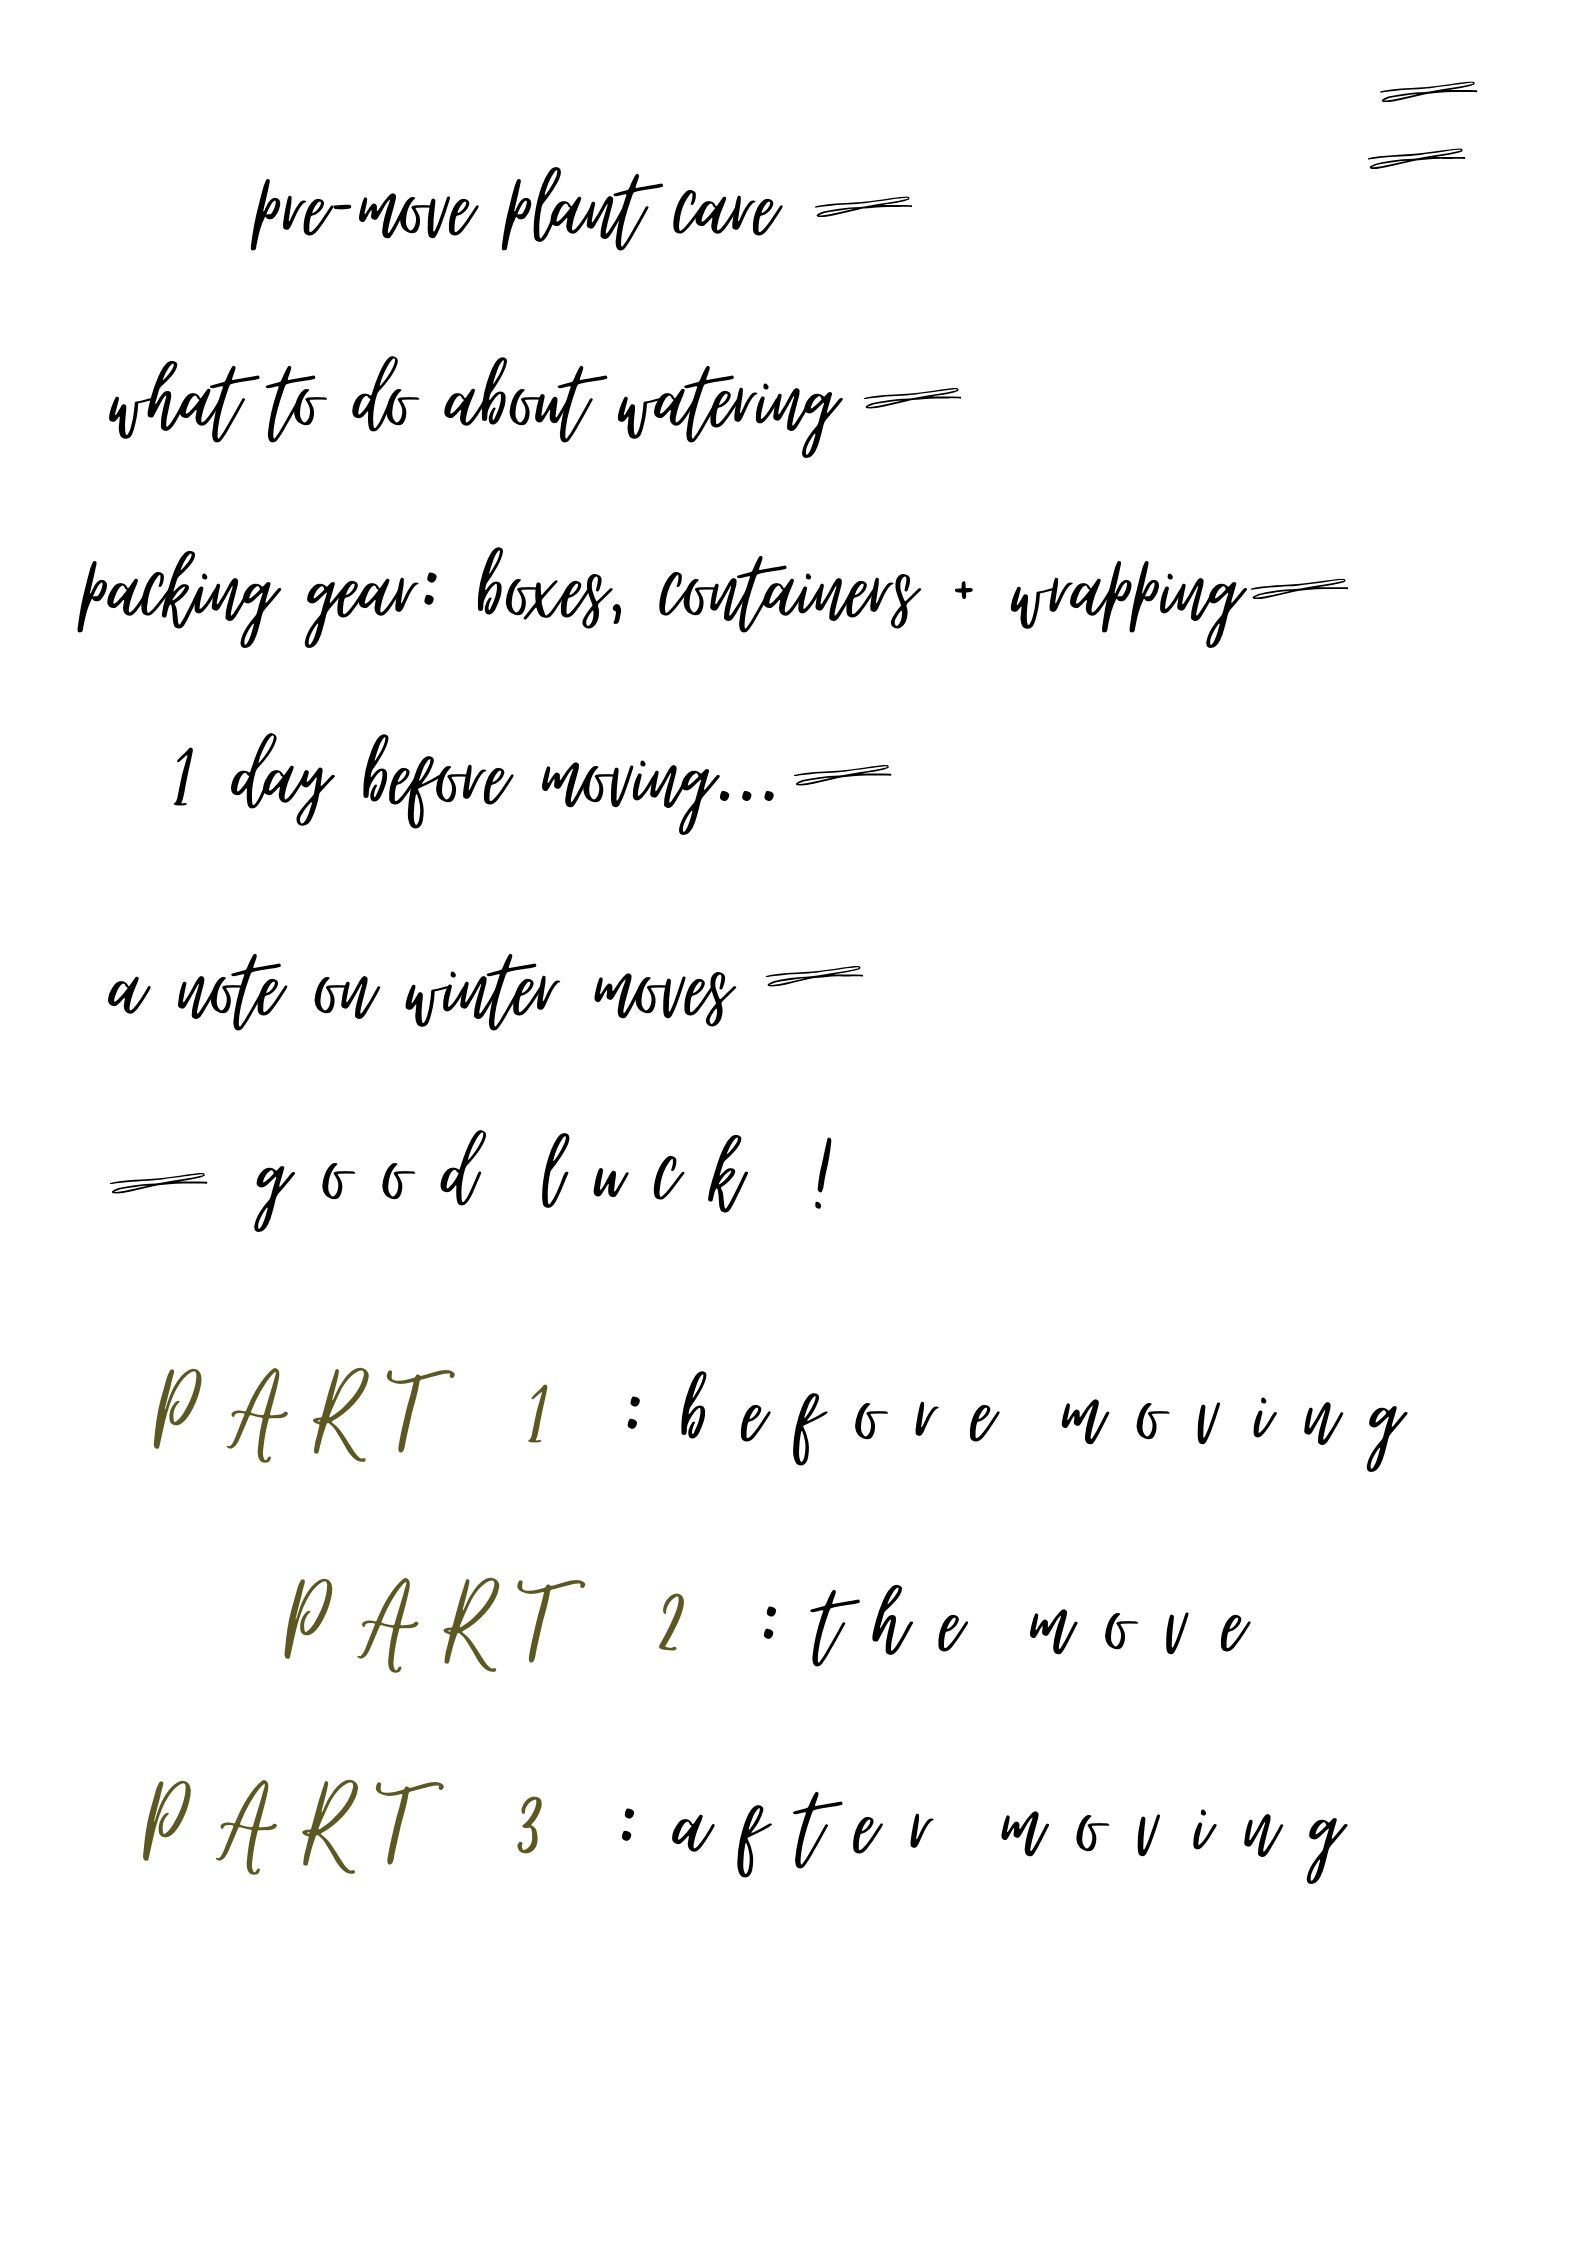 pre-move plant care
what to do about watering
packing gear: boxes, containers + wrapping
1 day before moving...
a note on winter moves
good luck !
PART 1 : before moving
PART 2 : the move
PART 3 : after moving